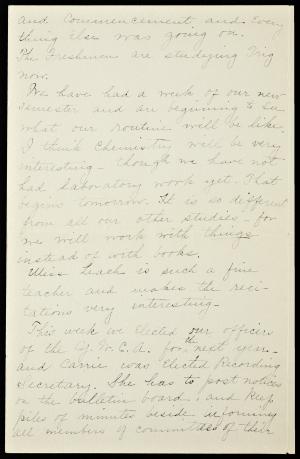 and Commencement and every
thing else was going on.
The Freshmen are studying Trig
now.
We have had a week of our new
semester and are beginning to see
what our routine will be like.
I think Chemistry will be very
interesting - though we have not
had laboratory work yet. That
begins tomorrow. It is so different
from all our other studies - for
we will work with things
instead of with books.
Miss Leach is such a fine
teacher and makes the reci-
tations very interesting -
This week we elected our officers
of the Y.W.C.A. for the next year -
and Carrie was elected Recording
Secretary. She has to post notices
on the bulletin board, and keep
piles of minutes beside informing
all members of committees of their